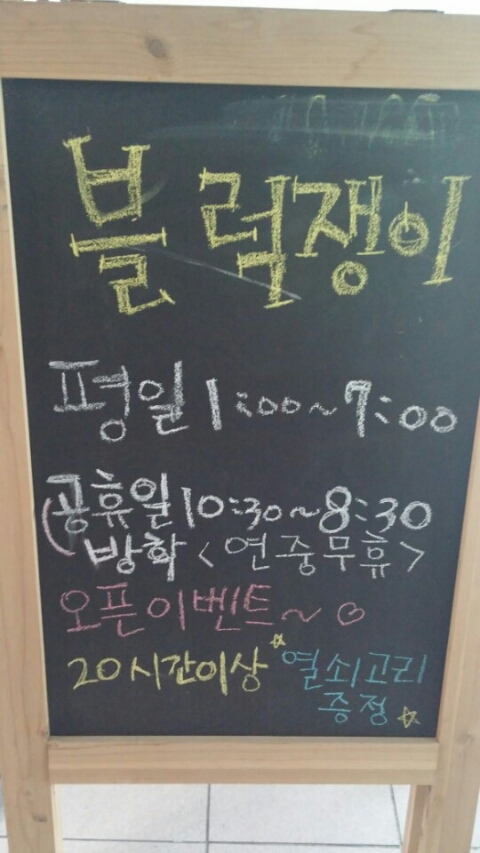 블럭쟁이
평일 1:00~7:00
공휴일 10:30~8:30
방학 <연중무휴>
오픈이벤트~
20시간이상 열쇠고리
증정